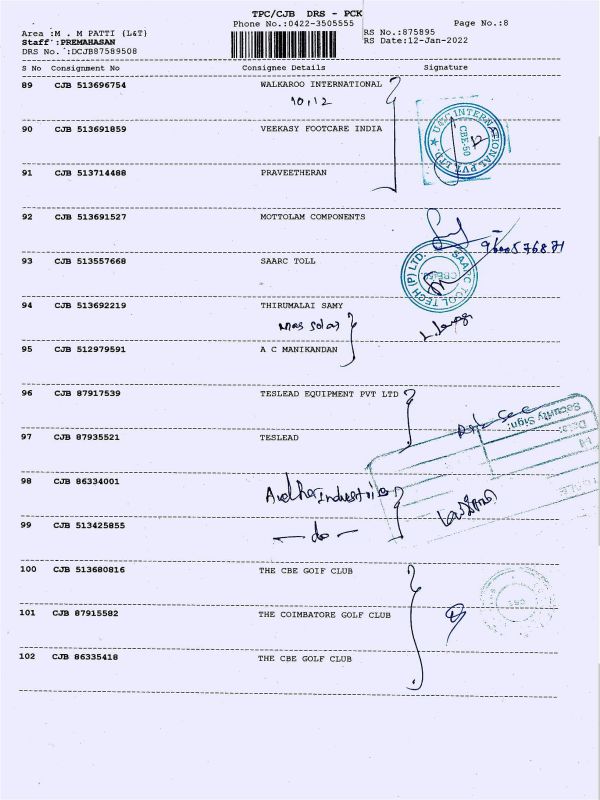 TPC/CJB DRS - PCK
Phone No.:0422-3505555 Page No.:8
Area :M . M PATTI {L&T} RS No.:875895
Staff :PREMAHASAN RS Date:12-Jan-2022
DRS No. :DCJB87589508
S No Consignment No Consignee Details Signature
89 CJB 513696754 WALKAROO INTERNATIONAL
10,12
90 CJB 513691859 VEEKASY FOOTCARE INDIA
91 CJB 513714488 PRAVEETHERAN
92 CJB 513691527 MOTTOLAM COMPONENTS
9600576871
93 CJB 513557668 SAARC TOLL
SAARC TOOL TECH (P) LTD.
94 CJB 513692219 THIRUMALAI SAMY
mas solar
95 CJB 512979591 A C MANIKANDAN
96 CJB 87917539 TESLEAD EQUIPMENT PVT LTD
Security Sign:
97 CJB 87935521 TESLEAD
98 CJB 86334001
99 CJB 513425855 — do —
100 CJB 513680816 THE CBE GOIF CLUB
101 CJB 87915582 THE COIMBATORE GOLF CLUB
102 CJB 86335418 THE CBE GOLF CLUB